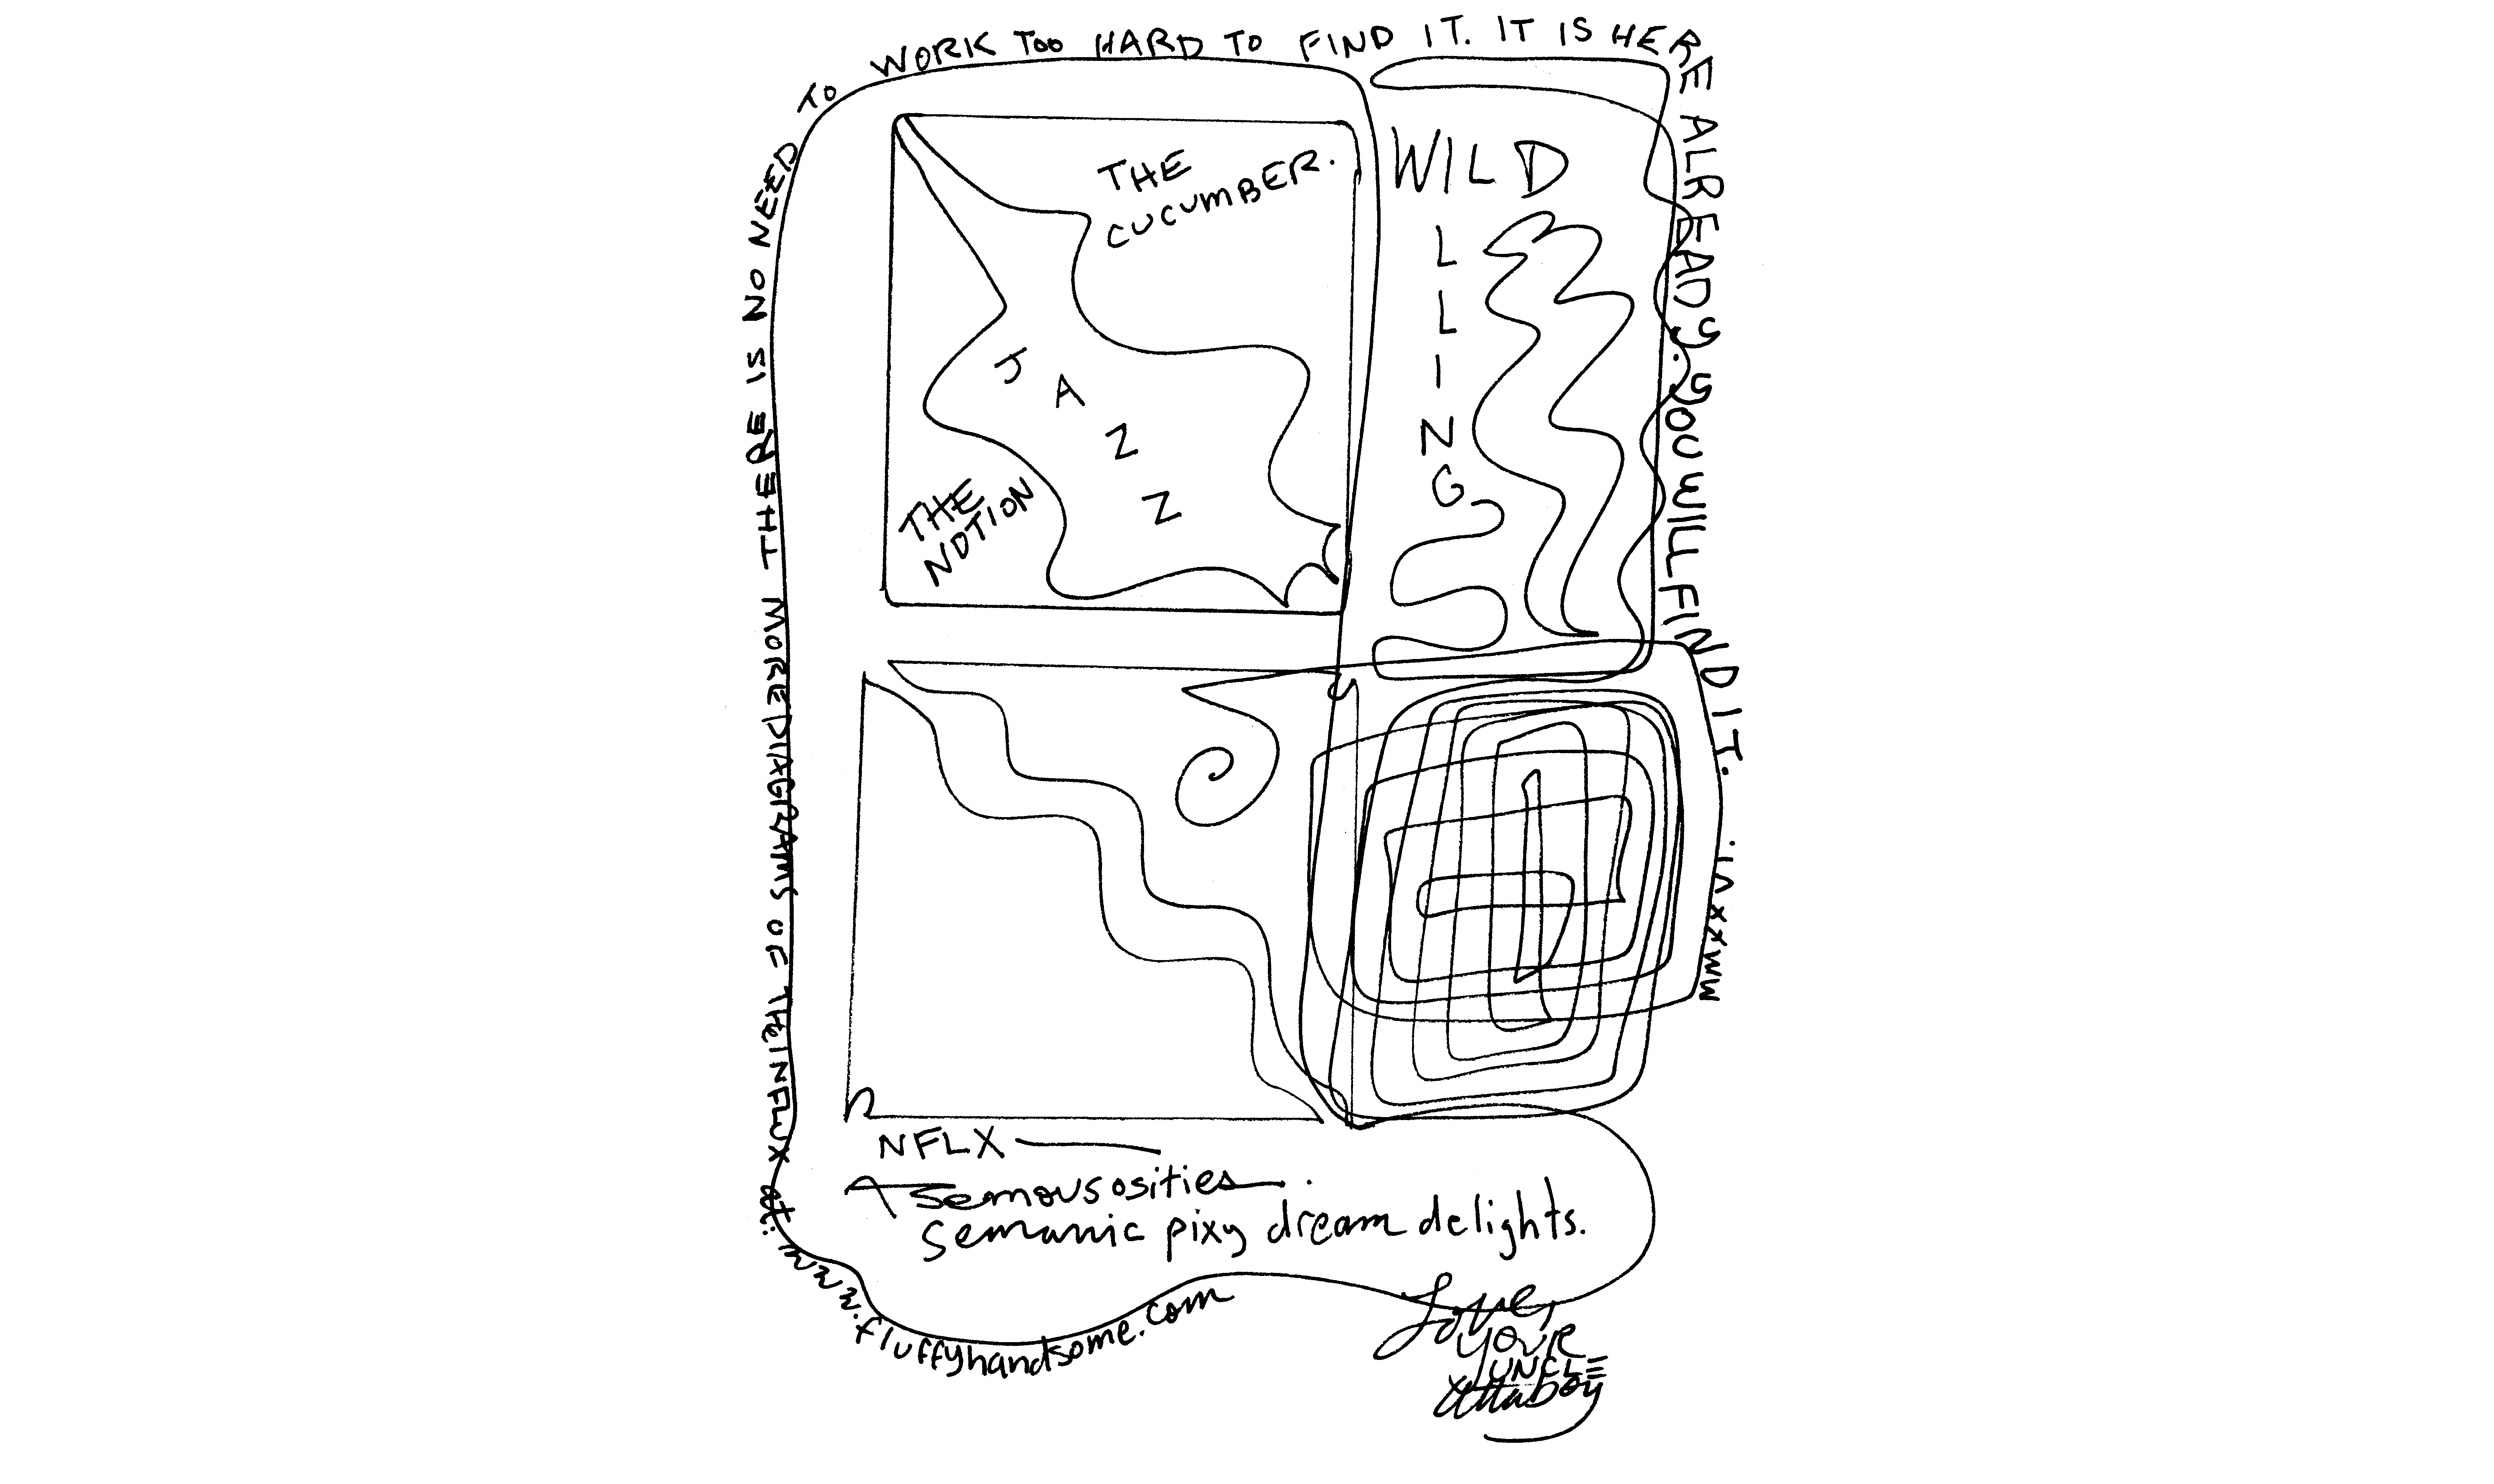 THERE IS NO NEED TO WORK TOO HARD TO FIND IT. IT IS HERE ALREADY. YOU WILL FIND IT.
THE
CUCUMBER.
JAZZ
THE
NOTION
WILD
WILLING
NFLX
Semousosities.
Semanic pixy dream delights.
MORE DIAGRAMS OF THE INFLUX at: www.fluffyhandsome.com
Love,
your
UNCLE